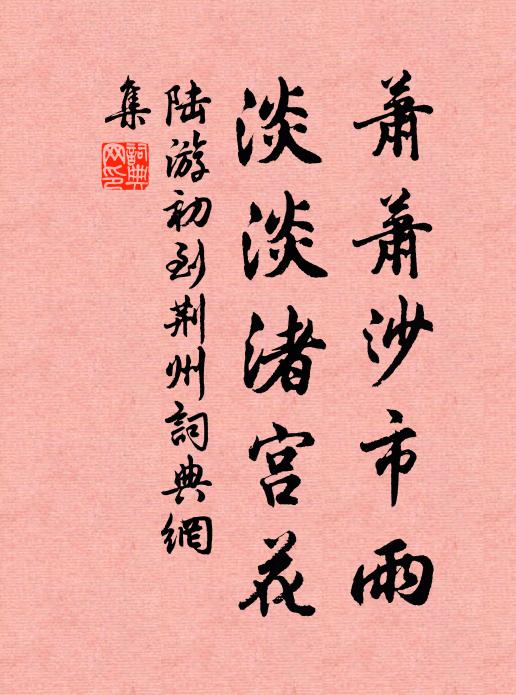 萧萧沙市雨
淡淡渚宫花
陆游初到荆州詞典網
集
詞典
网印